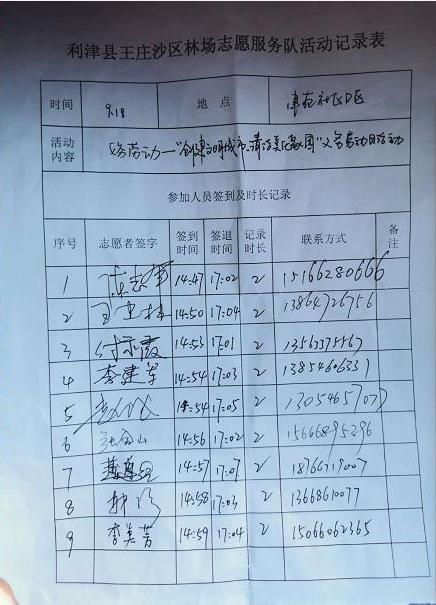 利津县王庄沙区林场志愿服务队活动记录表
时间 9.18 地点 津苑社区D区
活动内容 义务劳动—"创建文明城市、清洁美化家园"义务劳动日活动
参加人员签到及时长记录
序号 志愿者签字 签到时间 签退时间 记录时长 联系方式 备注
1 14:47 17:02 2 15166280666
2 14:50 17:04 2 13864726756
3 14:53 17:01 2
4 李建军 14:54 17:03 2 13854606331
5 14:54 17:05 2 13054657077
6 14:56 17:02 2 15666895296
7 14:57 17:07 2
8 14:58 17:03 2 13668610077
9 李美芳 14:59 17:04 2 15066062365